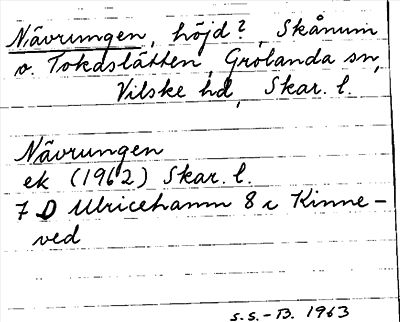 Nävrungen, höjd?, Skånum
o. Tokaslätten, Grolanda sn,
Vilske hd, Skar. l.
Nävrungen
ek (1962) Skar. l.
7 D Ulricehamn 8 i Kinne-
ved
S.S.-B. 1963